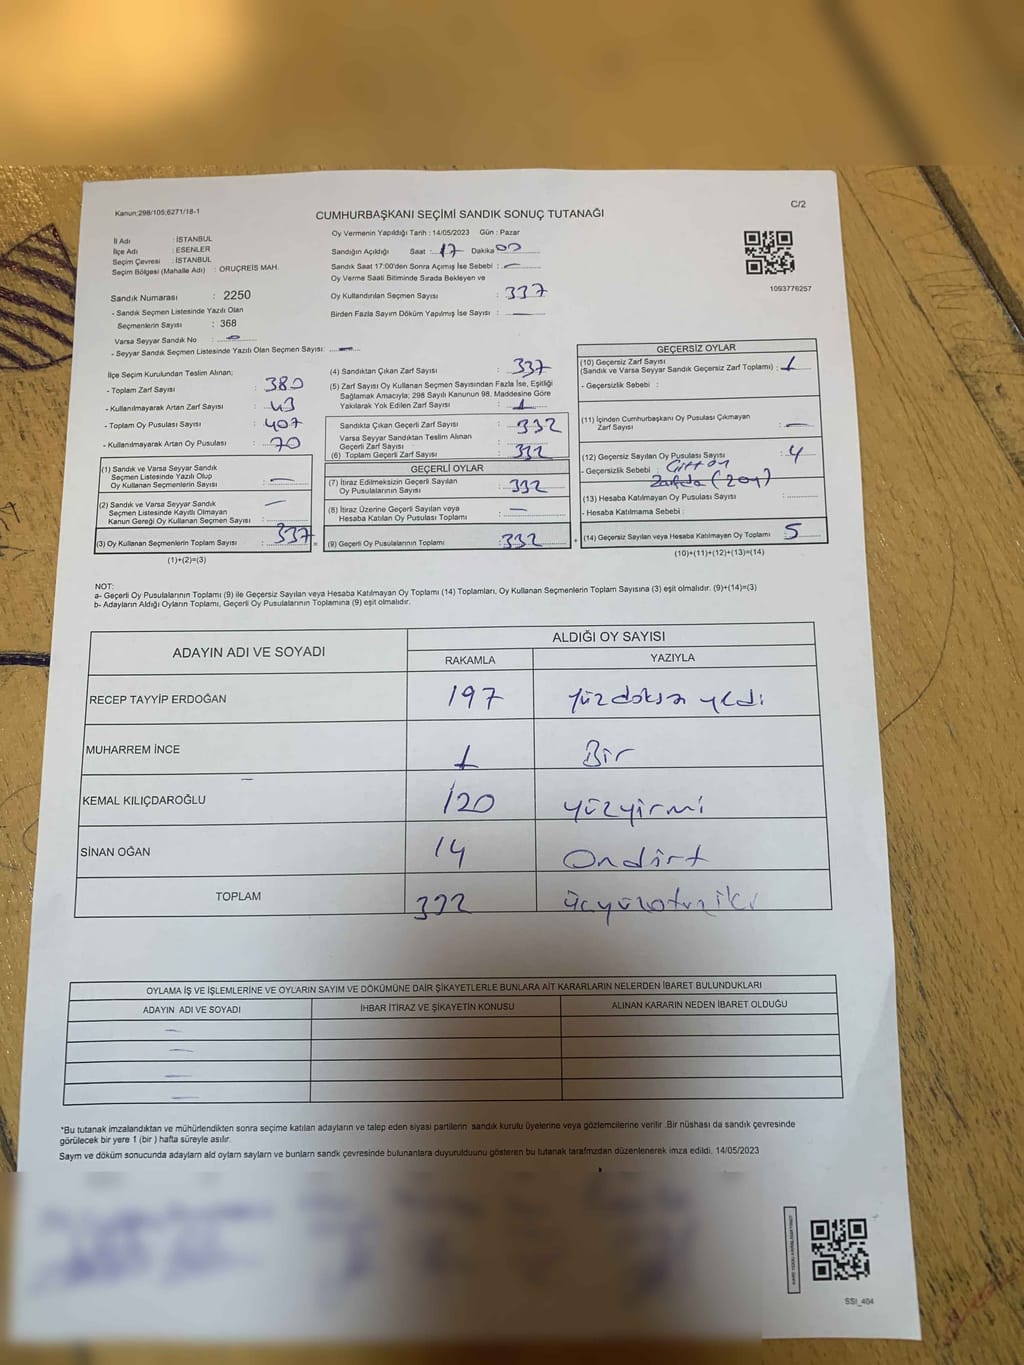 Kanun;298/105;6271/18-1
C/2
CUMHURBAŞKANI SEÇİMİ SANDIK SONUÇ TUTANAĞI
İl Adı : İSTANBUL
İlçe Adı : ESENLER
Seçim Çevresi : İSTANBUL
Seçim Bölgesi (Mahalle Adı) : ORUÇREİS MAH.
Sandık Numarası : 2250
- Sandık Seçmen Listesinde Yazılı Olan
Seçmenlerin Sayısı : 368
Varsa Seyyar Sandık No : —
- Seyyar Sandık Seçmen Listesinde Yazılı Olan Seçmen Sayısı: —
Oy Vermenin Yapıldığı Tarih : 14/05/2023 Gün : Pazar
Sandığın Açıldığı Saat : 17 Dakika 00
Sandık Saat 17:00'den Sonra Açımış İse Sebebi : —
Oy Verme Saati Bitiminde Sırada Bekleyen ve
Oy Kullandırılan Seçmen Sayısı : 337
Birden Fazla Sayım Döküm Yapılmış İse Sayısı : —
1093776257
İlçe Seçim Kurulundan Teslim Alınan;
- Toplam Zarf Sayısı : 380
- Kullanılmayarak Artan Zarf Sayısı : 43
- Toplam Oy Pusulası Sayısı : 407
- Kullanılmayarak Artan Oy Pusulası : 70
(1) Sandık ve Varsa Seyyar Sandık
Seçmen Listesinde Yazılı Olup
Oy Kullanan Seçmenlerin Sayısı : —
(2) Sandık ve Varsa Seyyar Sandık
Seçmen Listesinde Kayıtlı Olmayan
Kanun Gereği Oy Kullanan Seçmen Sayısı : —
(3) Oy Kullanan Seçmenlerin Toplam Sayısı : 337
(1)+(2)=(3)
(4) Sandıktan Çıkan Zarf Sayısı : 337
(5) Zarf Sayısı Oy Kullanan Seçmen Sayısından Fazla İse, Eşitliği
Sağlamak Amacıyla; 298 Sayılı Kanunun 98. Maddesine Göre
Yakılarak Yok Edilen Zarf Sayısı : 1
Sandıkta Çıkan Geçerli Zarf Sayısı : 332
Varsa Seyyar Sandıktan Teslim Alınan
Geçerli Zarf Sayısı
(6) Toplam Geçerli Zarf Sayısı : 332
GEÇERLİ OYLAR
(7) İtiraz Edilmeksizin Geçerli Sayılan
Oy Pusulalarının Sayısı : 332
(8) İtiraz Üzerine Geçerli Sayılan veya
Hesaba Katılan Oy Pusulası Toplamı : —
(9) Geçerli Oy Pusulalarının Toplamı : 332
GEÇERSİZ OYLAR
(10) Geçersiz Zarf Sayısı
(Sandık ve Varsa Seyyar Sandık Geçersiz Zarf Toplamı) : 1
- Geçersizlik Sebebi :
(11) İçinden Cumhurbaşkanı Oy Pusulası Çıkmayan
Zarf Sayısı : —
(12) Geçersiz Sayılan Oy Pusulası Sayısı : 4
- Geçersizlik Sebebi :
(13) Hesaba Katılmayan Oy Pusulası Sayısı :
- Hesaba Katılmama Sebebi :
(14) Geçersiz Sayılan veya Hesaba Katılmayan Oy Toplamı : 5
(10)+(11)+(12)+(13)=(14)
NOT:
a- Geçerli Oy Pusulalarının Toplamı (9) ile Geçersiz Sayılan veya Hesaba Katılmayan Oy Toplamı (14) Toplamları, Oy Kullanan Seçmenlerin Toplam Sayısına (3) eşit olmalıdır. (9)+(14)=(3)
b- Adayların Aldığı Oyların Toplamı, Geçerli Oy Pusulalarının Toplamına (9) eşit olmalıdır.
ADAYIN ADI VE SOYADI
ALDIĞI OY SAYISI
RAKAMLA YAZIYLA
RECEP TAYYİP ERDOĞAN 197 yüzdoksan yedi
MUHARREM İNCE 1 Bir
KEMAL KILIÇDAROĞLU 120 yüzyirmi
SİNAN OĞAN 14 Ondört
TOPLAM 332 üçyüzotuziki
OYLAMA İŞ VE İŞLEMLERİNE VE OYLARIN SAYIM VE DÖKÜMÜNE DAİR ŞİKAYETLERLE BUNLARA AİT KARARLARIN NELERDEN İBARET BULUNDUKLARI
ADAYIN ADI VE SOYADI İHBAR İTİRAZ VE ŞİKAYETİN KONUSU ALINAN KARARIN NEDEN İBARET OLDUĞU
*Bu tutanak imzalandıktan ve mühürlendikten sonra seçime katılan adayların ve talep eden siyasi partilerin sandık kurulu üyelerine veya gözlemcilerine verilir .Bir nüshası da sandık çevresinde
görülecek bir yere 1 (bir ) hafta süreyle asılır.
Saym ve döküm sonucunda adaylarn ald oylarn saylarn ve bunlarn sandk çevresinde bulunanlara duyurulduunu gösteren bu tutanak tarafmzdan düzenlenerek imza edildi. 14/05/2023
SSI_404